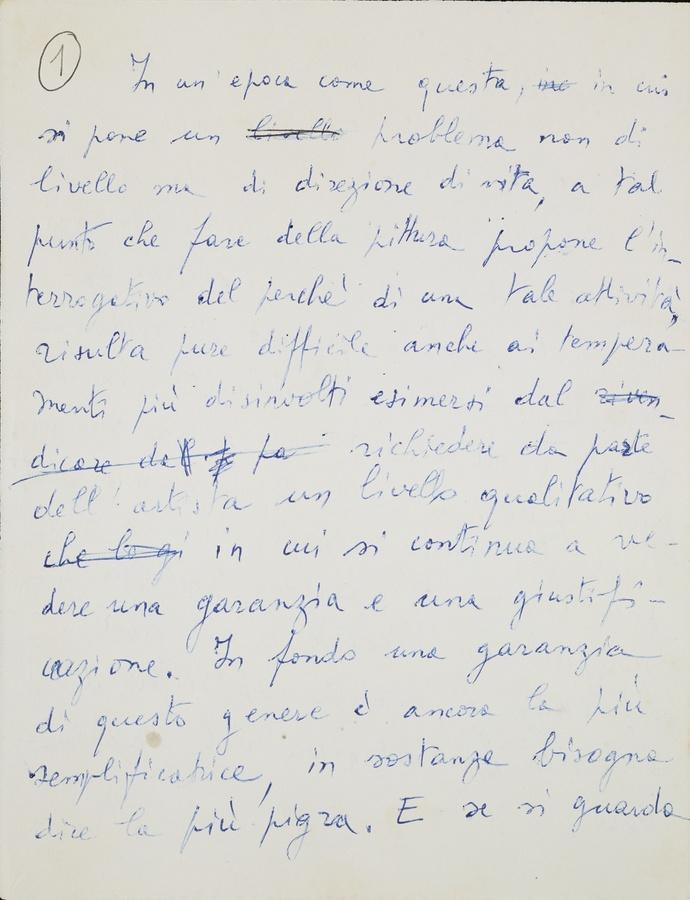 1
In un'epoca come questa, in cui
si pone un livello problema non di
livello ma di direzione di vita, a tal
punto che fare della pittura propone l'in-
terrogativo del perchè di una tale attività,
risulta pure difficile anche ai tempera-
menti più disinvolti esimersi dal riven-
dicare dal pa richiedere da parte
dell'artista un livello qualitativo
che lo gi in cui si continua a ve-
dere una garanzia e una giustifi-
cazione. In fondo una garanzia
di questo genere è ancora la più
semplificatrice, in sostanza bisogna
dire la più pigra. E se si guarda